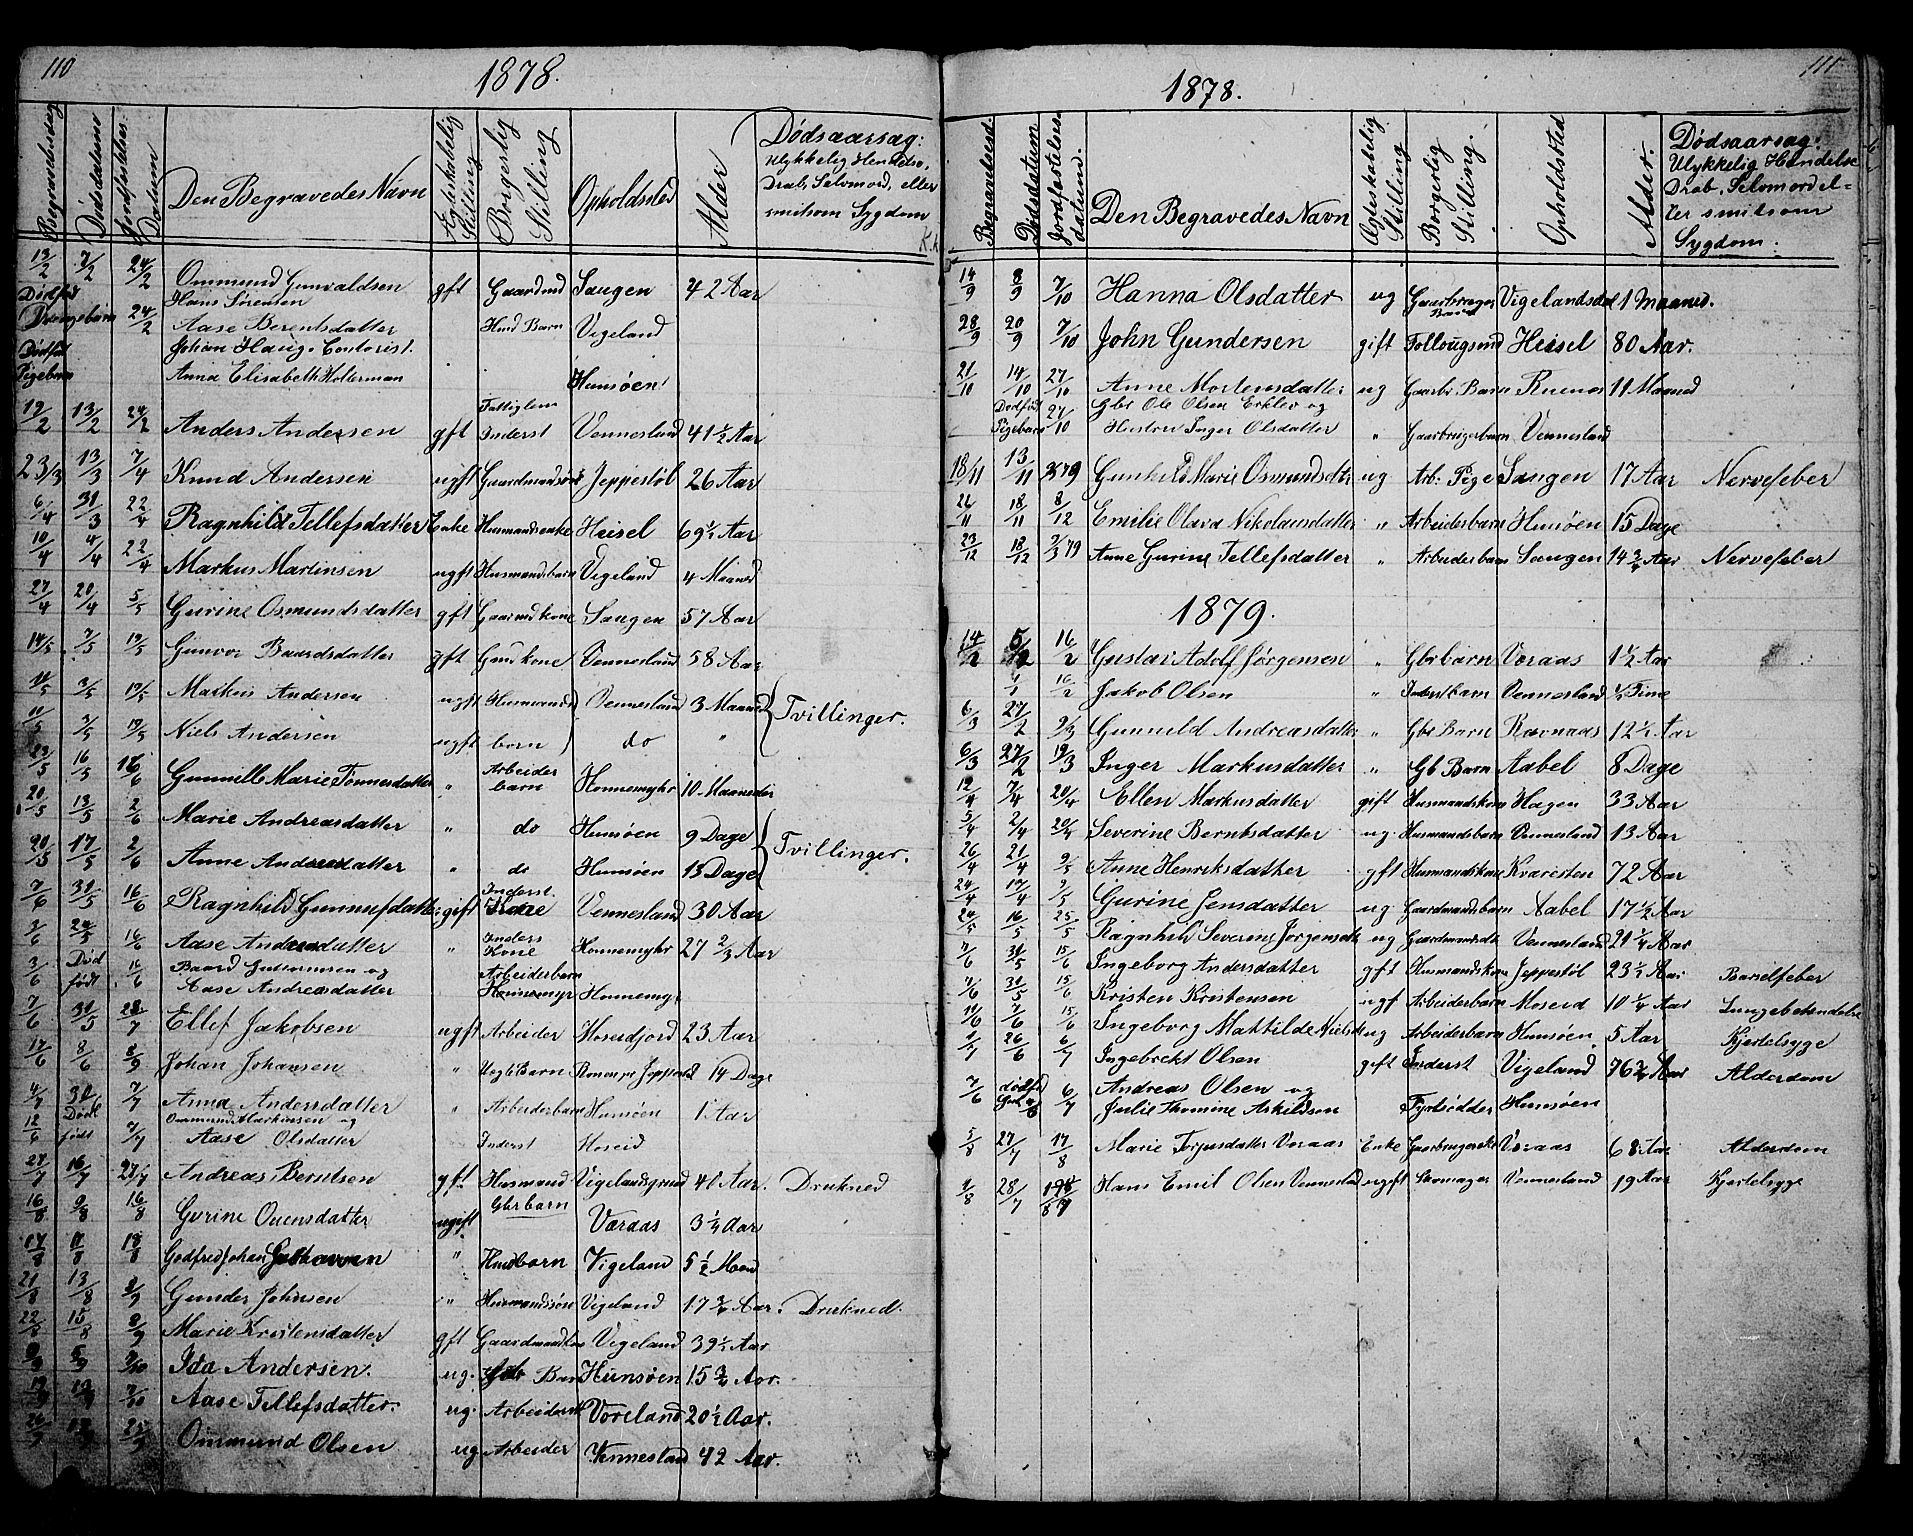 110
1878.
Begravelsesdag Dødsdatum Jordfæstelses Datum Den Begravedes Navn Ægteskabelig Stilling Borgerlig Stilling Opholdsted Alder Dødsaarsag:
Ulykkelig Hendelse,
Drab, Selvmord, eller
smitsom Sygdom
13/2 7/2 24/2 Ommund Gunvaldsen gft Gaardmd Saugen 42 Aar
Dødfød Drengebarn 24/2 Hans Sørensen
Aase Berentsdatter Barn Vigeland
Dødfød Pigebarn Johan Haug. Contorist.
Anna Elisabeth Holterman Hunsøen
19/2 13/2 24/2 Anders Andersen gft Fattiglem Inderst Vennesland 41 1/2 Aar
23/3 13/3 7/4 Knud Andersen ugft Gaardmandssøn Jeppestøl 26 Aar
6/4 31/3 22/4 Ragnhild Tellefsdatter Enke Husmandsenke Heisel 69 1/2 Aar
10/4 4/4 22/4 Markus Martinsen ugft Husmandsbarn Vigeland 4 Maaned
27/4 20/4 5/5 Gurine Osmundsdatter gft Gaarmdkone Saugen 57 Aar
14/5 7/5 19/5 Gunvor Baardsdatter gft Gmdkone Vennesland 58 Aar
11/5 3/5 19/5 Markus Andersen ugft Husmands Vennesland 3 Maaned Tvillinger.
11/5 3/5 19/5 Niels Andersen ugft born do "
23/5 16/5 16/6 Gunnille Marie Tønnesdatter " Arbeider barn Honnemyhr 10 Maaneder
20/5 13/5 2/6 Marie Andreasdatter " do Hunsøen 9 Dage Tvillinger.
20/5 17/5 2/6 Anne Andreasdatter " do Hunsøen 13 Dage
7/6 31/5 16/6 Ragnhild Gunnufdatter gift Inderst Kone Vennesland 30 Aar
3/6 24/5 16/6 Aase Andreasdatter " Inders Kone Honnemyhr 27 2/3 Aar
3/6 Død født 16/6 Baard Guttormsen og
Aase Andreasdatter Arbeiderbarn Honnemyr Honnemyr
7/6 31/5 28/7 Ellef Jakobsen ugft Arbeider Hoseidfjord 23 Aar
17/6 8/6 8/9 Johan Johansen " Barn 14 Dage
4/7 30/6 7/7 Anna Andersdatter " Arbeiderbarn Hunsøen 1 Aar
12/6 Død født 7/7 Ommund Markussen og
Aase Olsdatter Inderst Hoseid
27/7 16/7 27/7 Andreas Berntsen gft Husmand Vigelandsgrund 41 Aar. Drukned
16/8 9/8 16/8 Gurine Ouensdatter ugift Gbrbarn Væraas 3 1/4 Aar
17/8 11/8 18/8 Godfred Johan " Husbarn Vigeland 5 1/2 Maand
21/8 13/8 8/9 Gunder Johnsen " Husmandssøn Vigeland 17 3/4 Aar. Druknede
22/8 15/8 8/9 Marie Kristensdatter gft Gaardmandkone Vigeland 39 1/2 Aar
Ida Andersen. ug. Barn Hunsøen 15 3/4 Aar.
Aase Tellefsdatter. ug. Voreland 20 1/2 Aar.
Ommund Olsen ug Arbeider Vennesland 42 Aar.
111
1878.
Begravelsesd: Dødsdatum Jordfæstelses datum. Den Begravedes Navn Ægteskabelig Stilling Borgerlig Stilling. Opholdsted Alder. Dødsaarsag.
Ulykkelig Hændelse
Drab, Selvmord el-
ler smitsom
Sygdom.
14/9 8/9 7/10 Hanna Olsdatter ug Gaarbruger Barn Vigelandsdal 1 Maaned.
28/9 20/9 7/10 John Gundersen gift Follougsmd Heisel 80 Aar.
21/10 14/10 27/10 Anne Mortensdatter ug Gaarbr Barn Ruenes 11 Maaned
Dødfød Pigebarn 27/10 Gbr Ole Olsen Erklev og
Hustru Inger Olsdatter " Gaarbrugerbarn Vennesland
18/11 13/11 Gunhild Marie Osmundsdtr ug Arb: Pige Saugen 17 Aar Nervefeber
26/11 18/11 8/12 Emilie Olava Nikolaisdatter " Arbeiderbarn Hunsøen 15 Dage
23/12 18/12 2/3 79 Anne Gurine Tellefsdatter " Arbeiderbarn Saugen 14 3/4 Aar Nervefeber
1879.
14/2 5/2 16/2 Gustav Adolf Jørgensen " Gbrbarn Væraas 1 1/2 Aar
1/1 16/2 Jakob Olsen " Inderstbarn Vennesland 1/2 Time
6/3 27/2 9/3 Gunnild Andreasdatter " Gbr Barn Ravnaas 12 1/2 Aar
6/3 27/2 19/3 Inger Markusdatter " Gb Barn Aabel 8 Dage
12/4 7/4 20/4 Ellen Markusdatter gift Husmandskone Hægen 33 Aar
5/4 2/4 20/4 Severine Berntsdatter ug. Husmandsbarn Vennesland 13 Aar
26/4 21/4 9/5 Anne Henriksdatter gft Husmandskone Kvaresten 72 Aar
24/4 17/4 9/5 Gurine Jensdatter ug Gaardmandsbarn Aabel 17 1/2 Aar
24/5 16/5 25/5 Ragnhild Severine Jørgensdtr ug Gaardmandsdtr Vennesland 21 1/4 Aar
7/6 31/5 15/6 Ingeborg Andersdatter gft Husmandskone Jeppestøl 23 1/2 Aar Barselfeber
7/6 31/5 15/6 Kristen Kristensen ugf Arbeiderbarn Moseid 10 1/4 Aar Lungebetendelse
14/6 7/6 15/6 Ingeborg Mathilde Nielsdtr ug Arbeiderbarn Hunsøen 5 Aar Kjertelsyge
1/7 26/6 6/7 Ingebrekt Olsen gift Inderst Vigeland 76 3/4 Aar Alderdom
7/6 dødfød 6/7 Andreas Olsen og
Julie Thomine Askildsen Fyrbødder Hunsøen
5/8 27/7 17/8 Marie Terjusdatter Væraas Enke Gaarbrugerske Væraas 68 Aar Alderdom
1/8 28/7 Hans Emil Olsen Vennesland ugft Skomager Vennesland 19 Aar Kjertelsyge